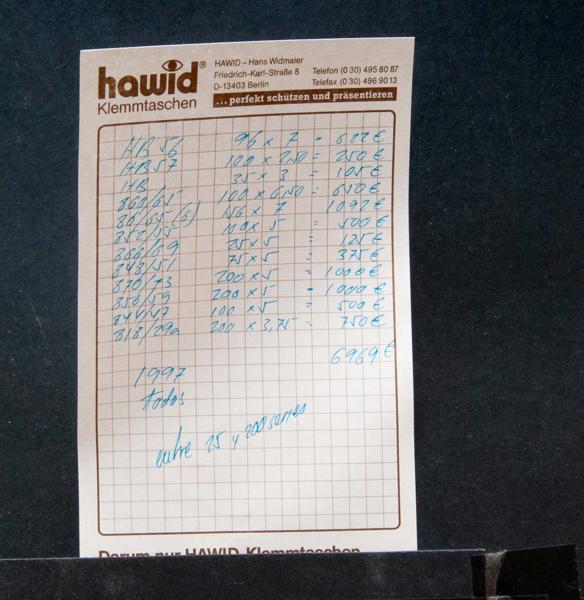 hawid®
Klemmtaschen
HAWID – Hans Widmaier
Friedrich-Karl-Straße 8
D-13403 Berlin
Telefon (0 30) 495 80 87
Telefax (0 30) 496 90 13
... perfekt schützen und präsentieren
HB 56 96 x 7 = 622 €
HB 57 100 x 2,50 = 250 €
HB 35 x 3 = 105 €
860/65 100 x 6,50 = 650 €
86/65 (6) 156 x 7 1092 €
852/55 100 x 5 = 500 €
866/69 25 x 5 = 125 €
848/51 75 x 5 = 375 €
870/73 200 x 5 = 1000 €
856/59 200 x 5 = 1000 €
844/47 100 x 5 = 500 €
318/29a 200 x 3,75 = 750 €
6969 €
1997
todas
entre 25 y 200 series
Darum nur HAWID-Klemmtaschen